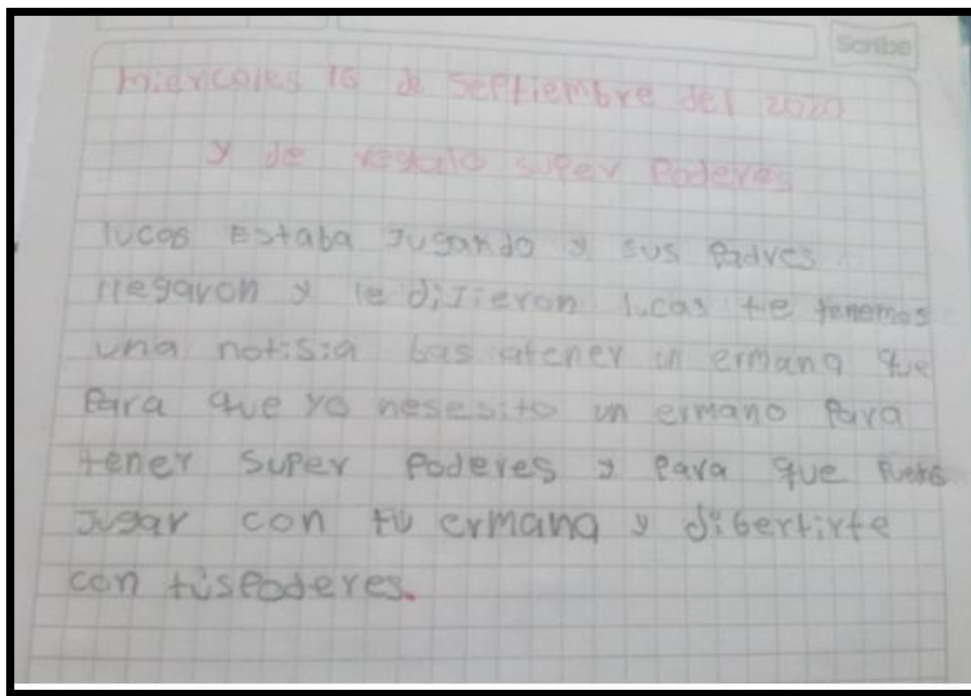 Scribe
Miercoles 16 de Septiembre del 2020
y de regalo super Poderes
lucas Estaba Jugando y sus Padres
llegaron y le diJieron lucas te tenemos
una notisia bas atener un ermana que
Para que yo nesesito un ermano Para
tener super Poderes y Para que Puedas
Jugar con tu ermana y dibertirte
con tusPoderes.